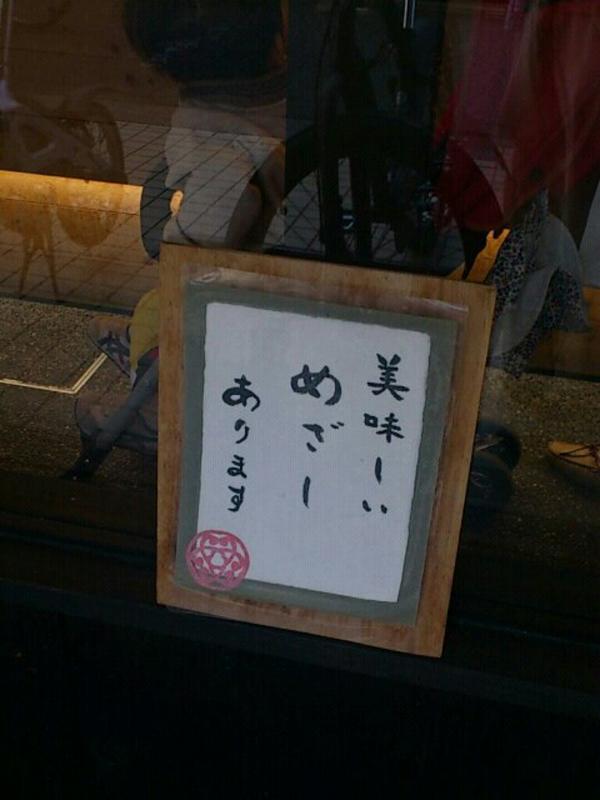 美味しい
めざし
あります